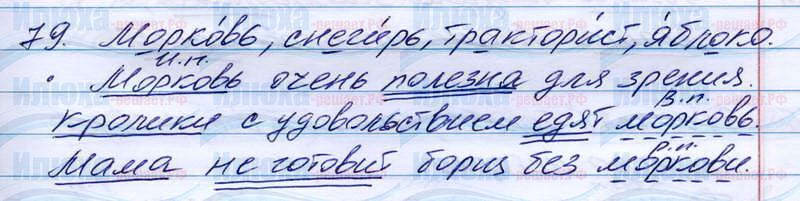 79. Морко́вь, снеги́рь, тракто́рист, я́блоко.
И.п.
Морковь очень полезна для зрения.
В.п.
Кролики с удовольствием едят морковь.
Р.п.
Мама не готовит борщ без моркови.